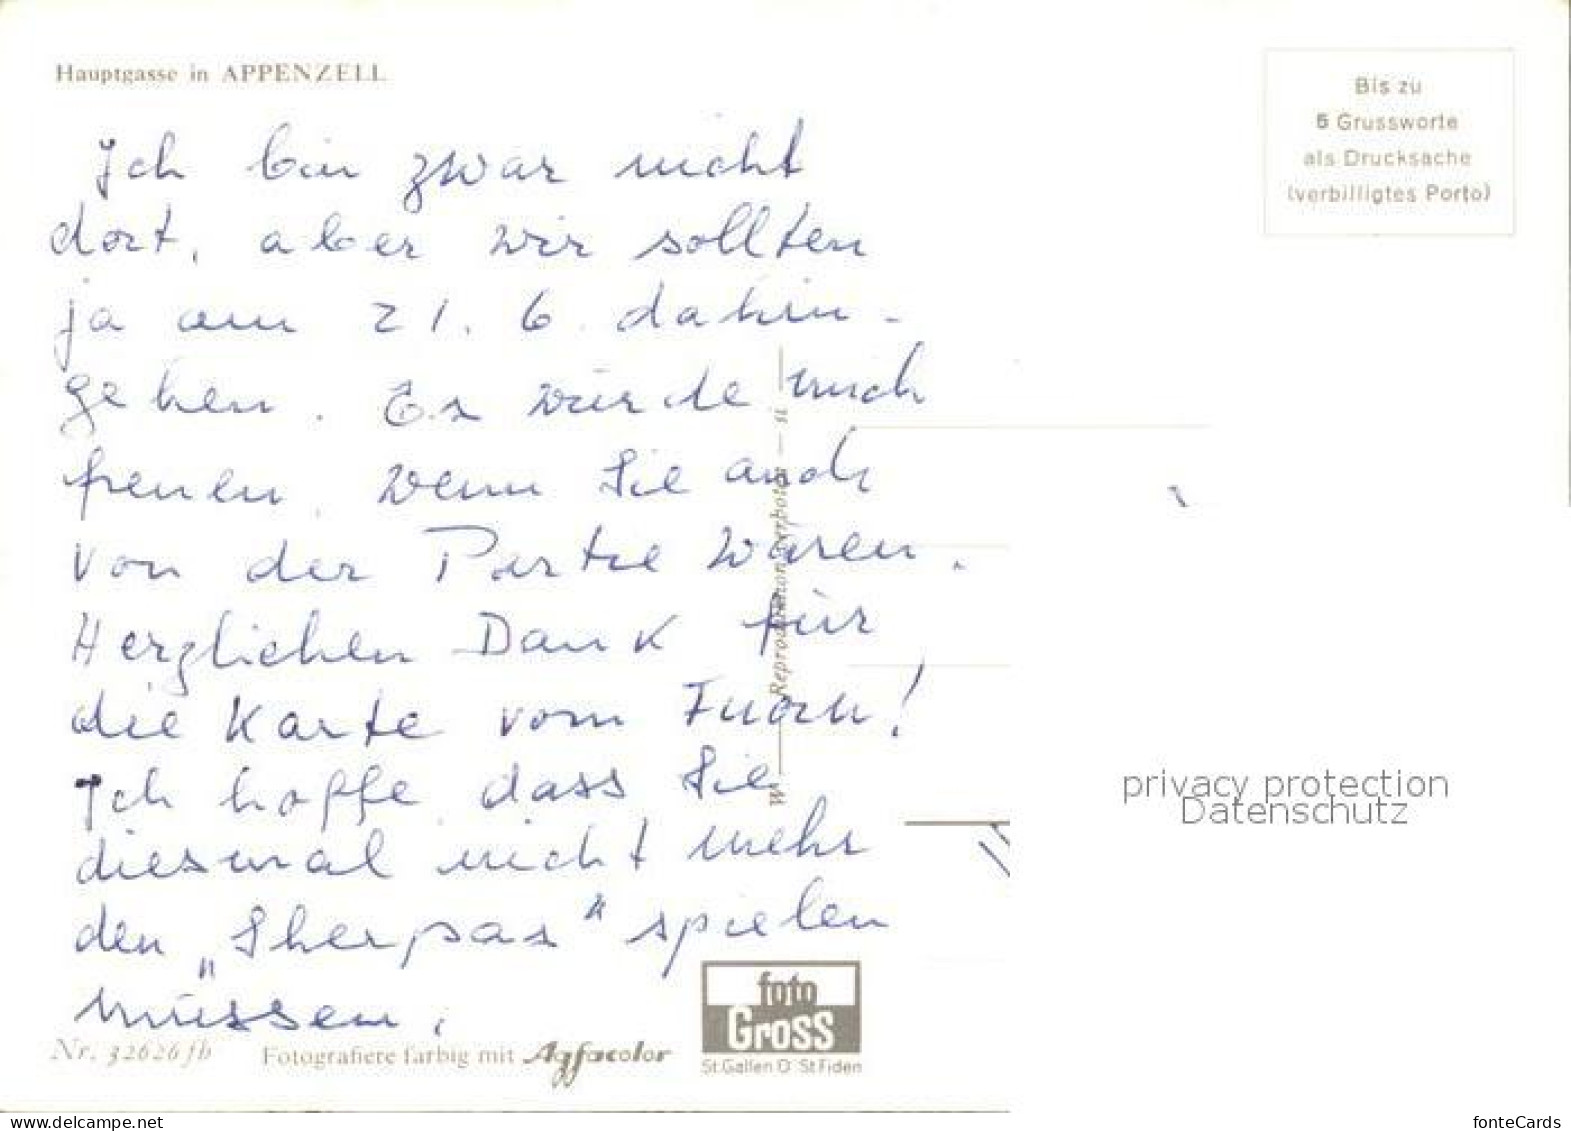 Hauptgasse in APPENZELL
Bis zu
5 Grussworte
als Drucksache
(verbilligtes Porto)
Ich bin zwar nicht
dort, aber wir sollten
ja am 21. 6. dahin-
gehen. Es würde mich
freuen, wenn Sie auch
von der Partie wären.
Herzlichen Dank für
die Karte vom
Ich hoffe, dass Sie
diesmal nicht mehr
den „Sherpas“ spielen
müssen.
Reproduktion verboten
privacy protection
Datenschutz
foto
Gross
St.Gallen O St Fiden
Nr. 32626 fb
Fotografiere farbig mit Agfacolor
www.delcampe.net
fonteCards